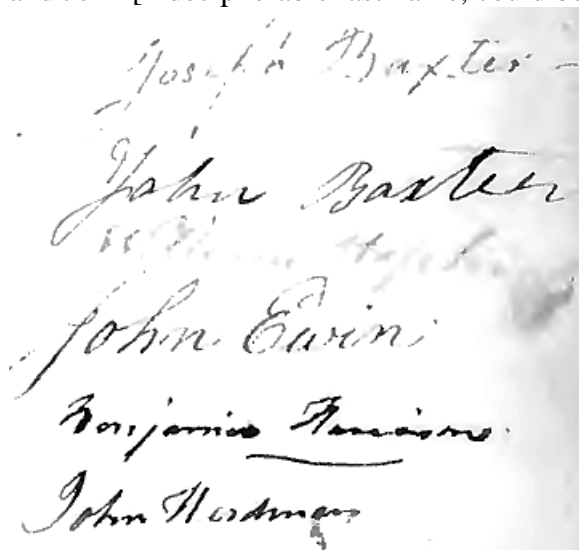 Joseph Baxter
John Baxter
John Ewin
Benjamin Harrison
John Herdman